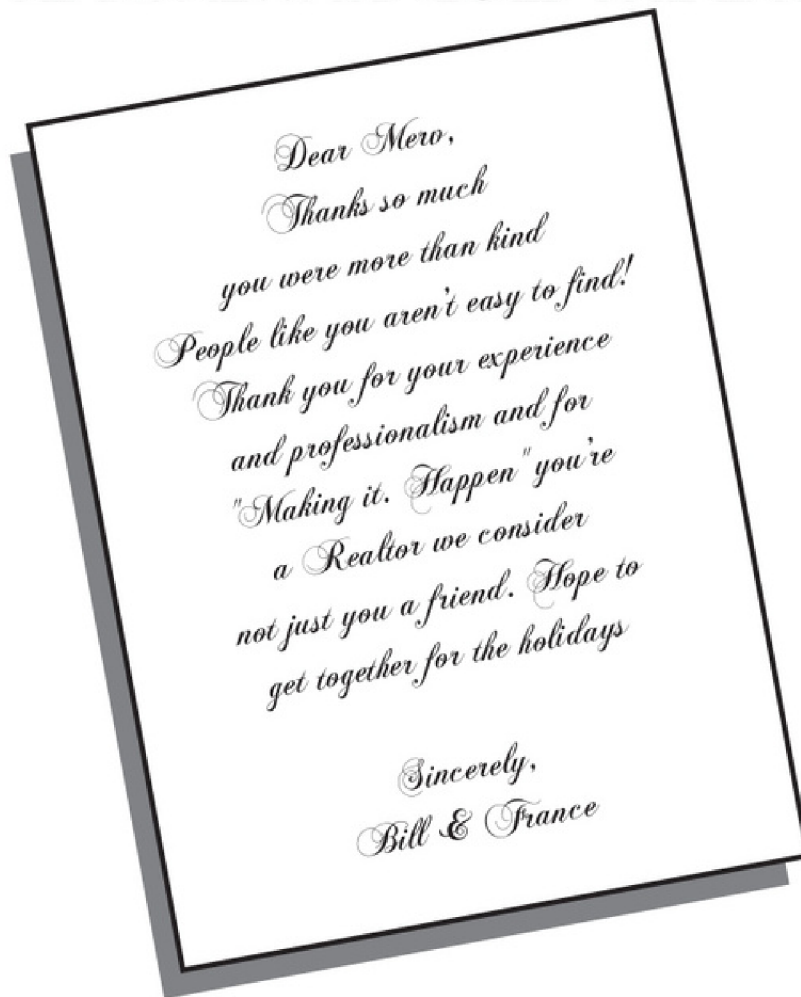 Dear Mero,
Thanks so much
you were more than kind
People like you aren't easy to find!
Thank you for your experience
and professionalism and for
"Making it. Happen" you're
a Realtor we consider
not just you a friend. Hope to
get together for the holidays
Sincerely,
Bill & France